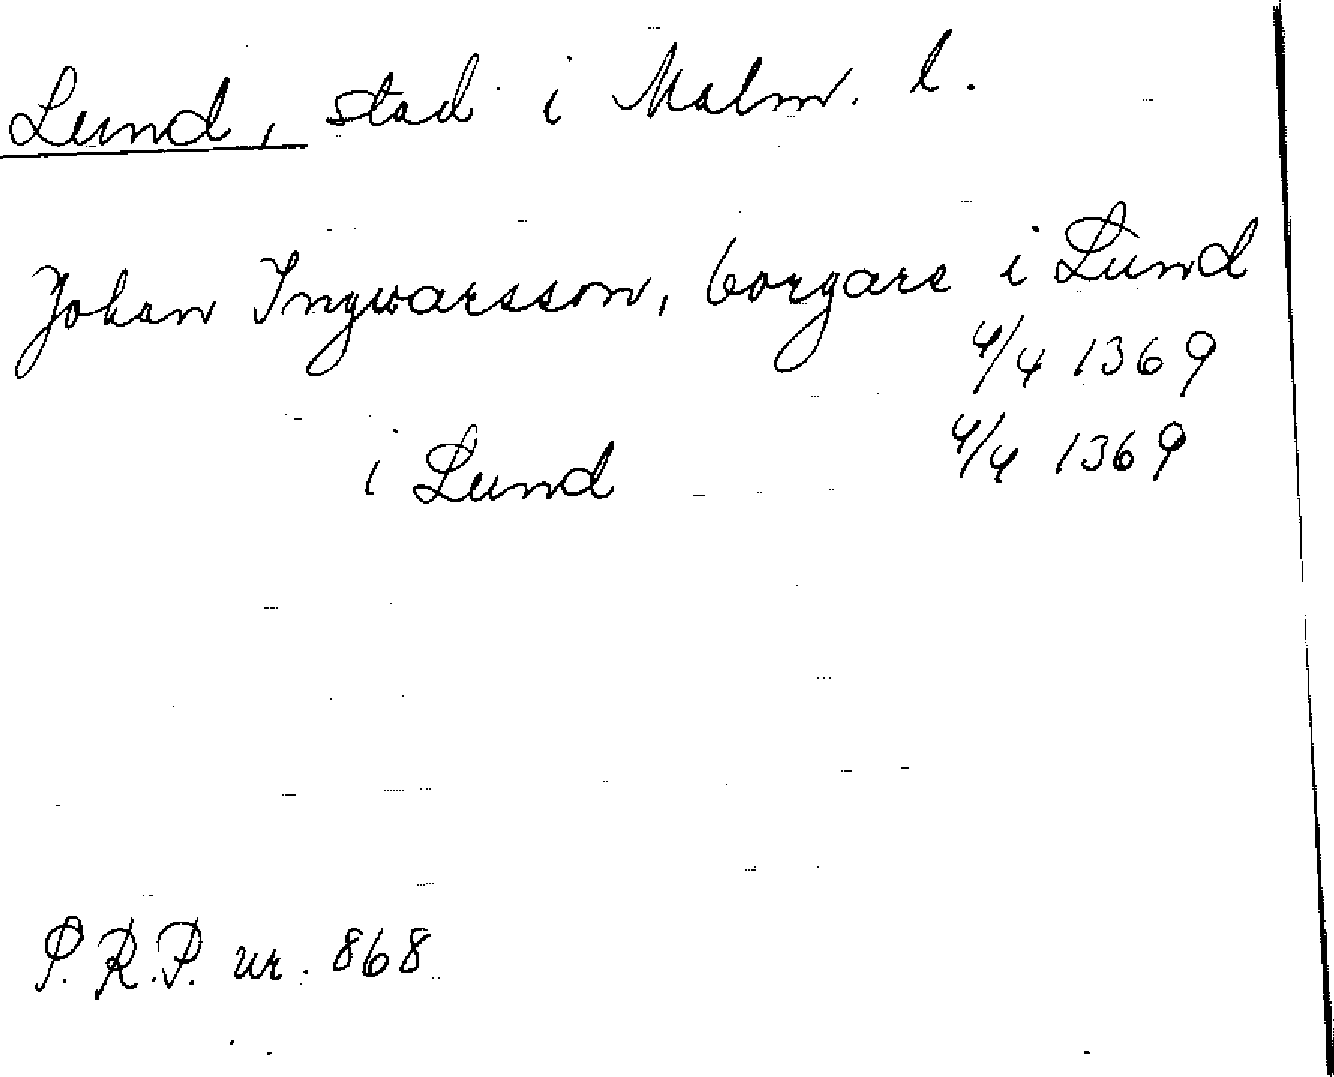 Lund, stad i Malm. l.
Johan Ingwarsson, borgare i Lund
4/4 1369
i Lund 4/4 1369
P.R.P. nr. 868